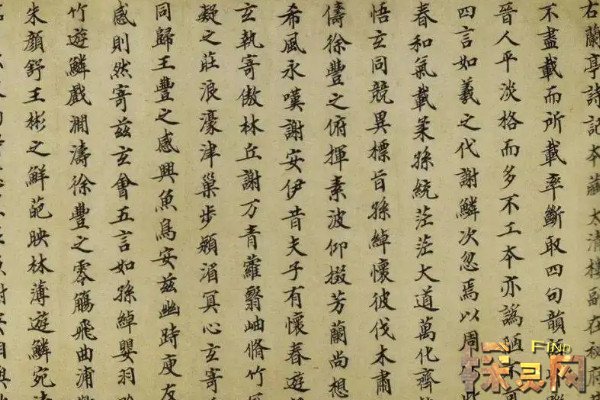 右蘭亭詩記本藏太清樓副在秘府
不盡載而所載率斷取四句韻
晉人平淡格而多不工本亦譌
四言如羲之代謝鱗次忽焉以周
春和氣載柔孫統茫茫大道萬化齊
悟玄同競異標旨孫綽懷彼伐木肅
儔徐豐之俯揮素波仰掇芳蘭尚想
希風永嘆謝安伊昔夫子有懷春遊
玄執寄傲林丘謝万青蘿翳岫脩竹
凝之莊浪濠津巢步潁湄冥心玄寄
同歸王豐之感興魚鳥安茲幽時庾友
感則然寄茲玄會五言如孫綽嬰羽
竹遊鱗戲澗濤徐豐之零觴飛曲浦
朱顏舒王彬之鮮葩映林薄遊鱗宛
FIND
探灵网